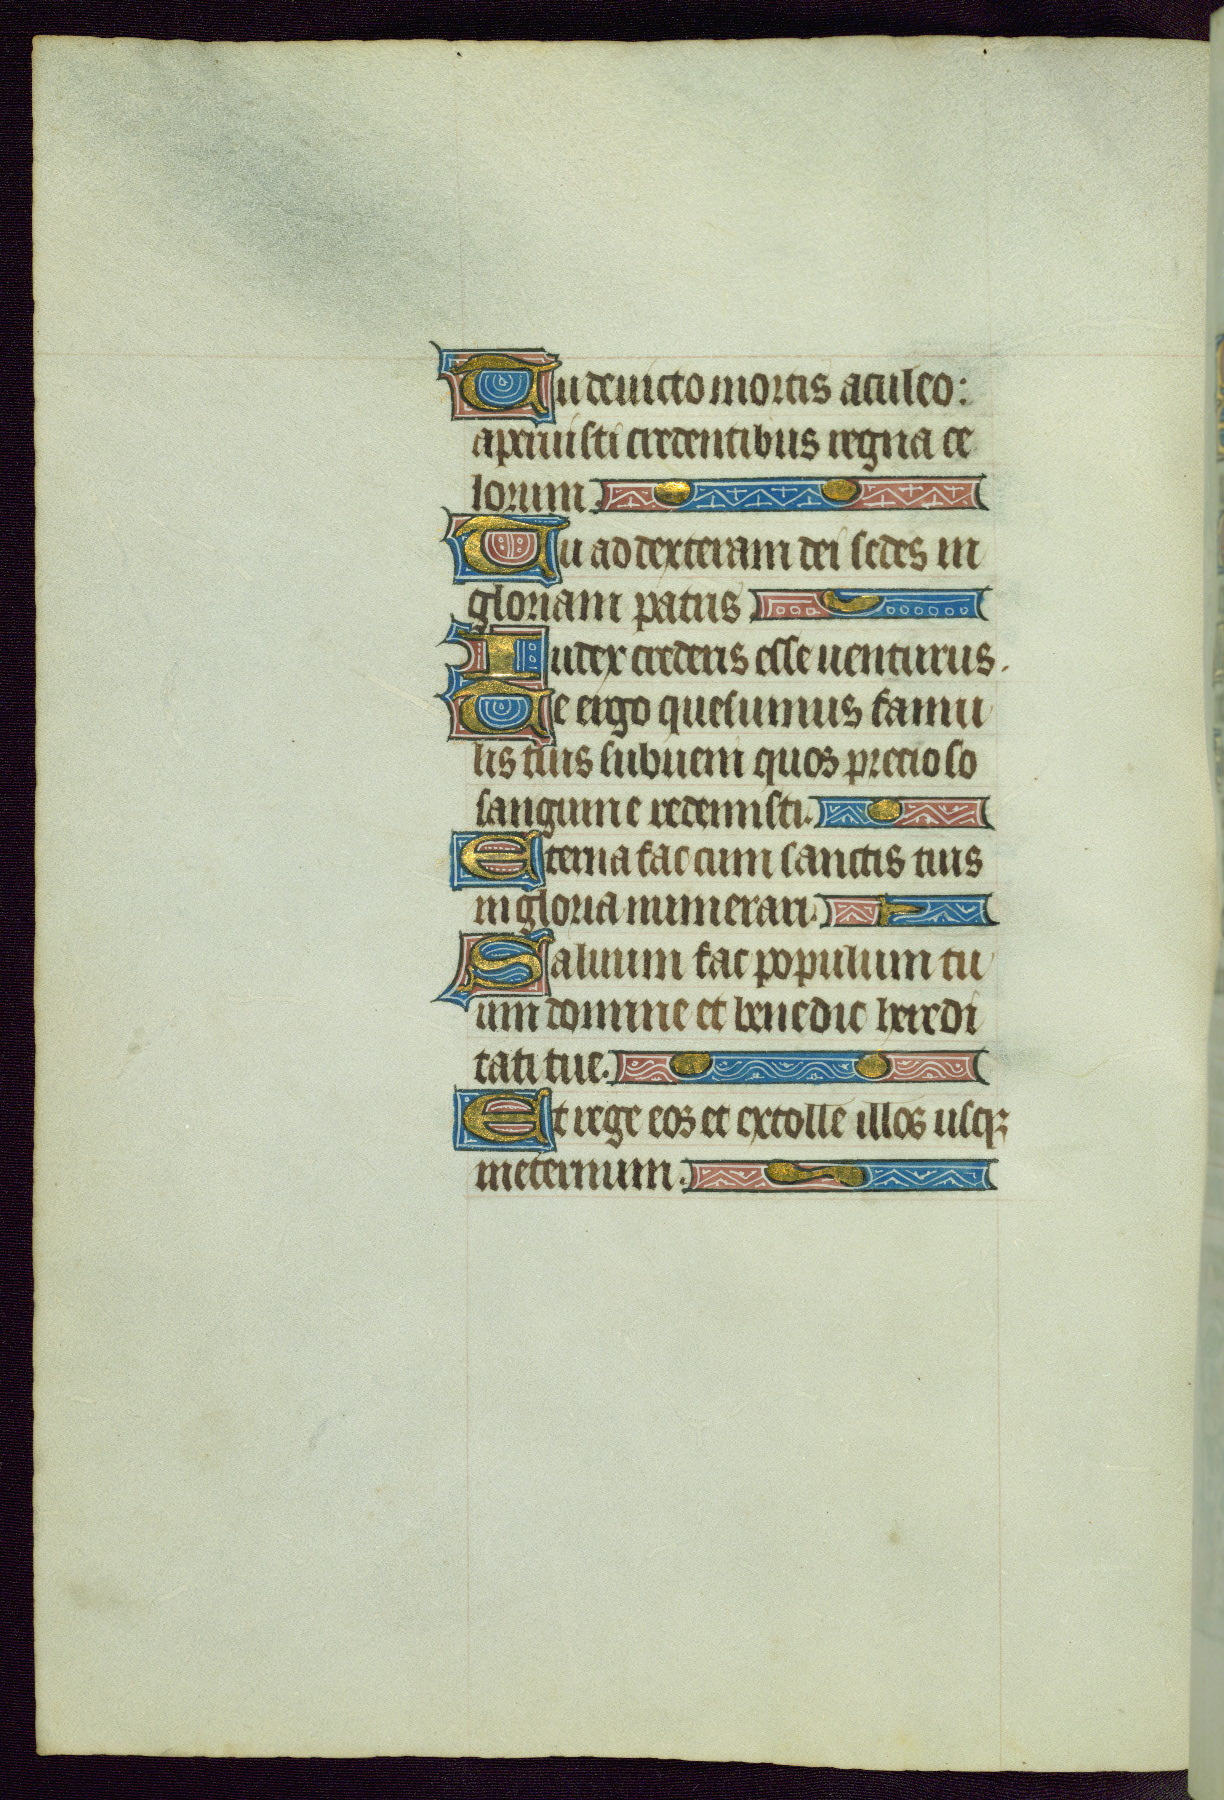 Tu devicto mortis aculeo:
aperuisti credentibus regna ce
lorum.
Tu ad dexteram dei sedes in
gloriam patris
Iudex crederis esse uenturus.
Te ergo quesumus famu
lis tuis subueni quos precioso
sanguine redemisti.
Eterna fac cum sanctis tuis
in gloria numerari.
Saluum fac populum tu
um domine et benedic heredi
tati tue.
Et rege eos et extolle illos usqꝫ
in eternum.